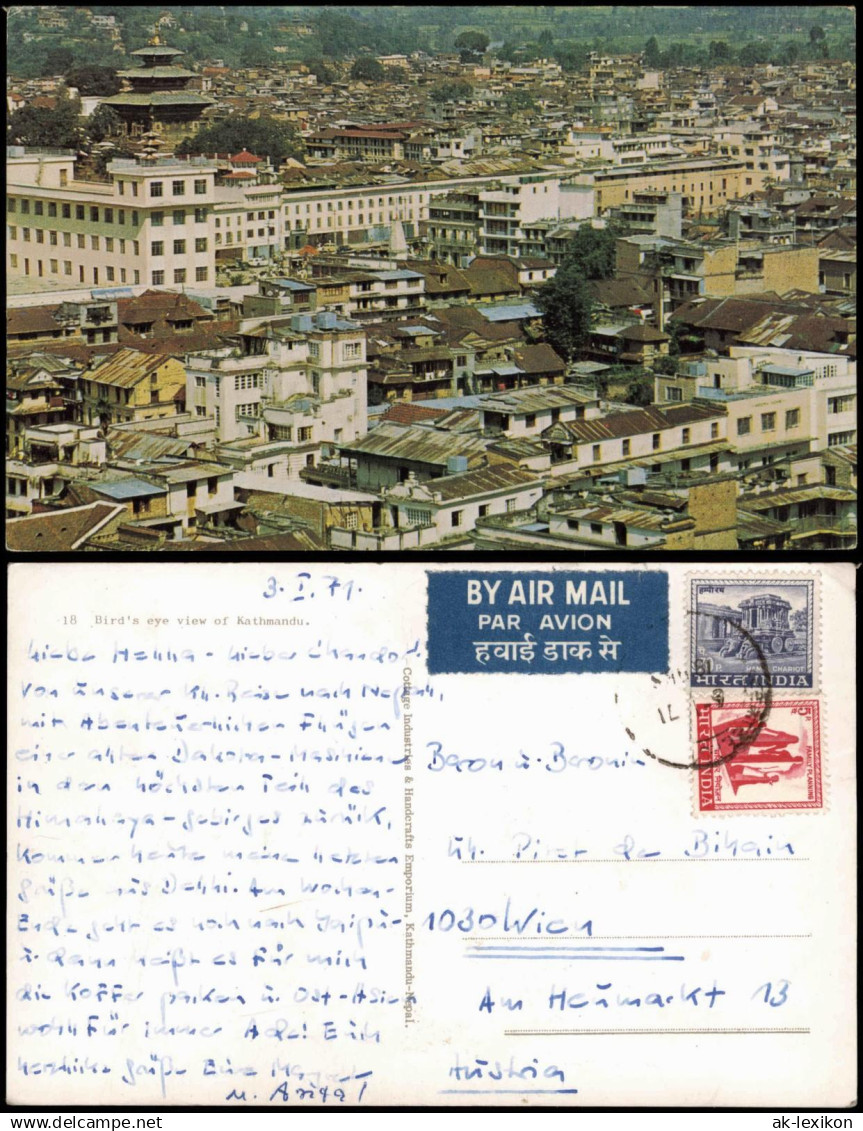 3. I. 71.
18 Bird's eye view of Kathmandu.
BY AIR MAIL
PAR AVION
हवाई डाक से
हम्पी रथ
HAMPI CHARIOT
भारत INDIA
भारत INDIA
FAMILY PLANNING
Cottage Industries & Handcrafts Emporium, Kathmandu-Nepal.
Liebe Henna - Lieber
von unserer Reise nach
mit Abenteuerlichen Flügen
einer alten Dakota-Maschine
in den höchsten Teil des
Himalaya-gebirges zurück,
kommen heute meine letzten
grüße aus Delhi. Am Wochen-
Ende geht es noch nach Jaipur
u. dann heißt es für mich
die Koffer packen u. Ost-Asien
wohl für immer Ade! Euch
herzliche grüße Eure
Baron u. Baronin
1030 Wien
Am Heumarkt 13
Austria
ak-lexikon